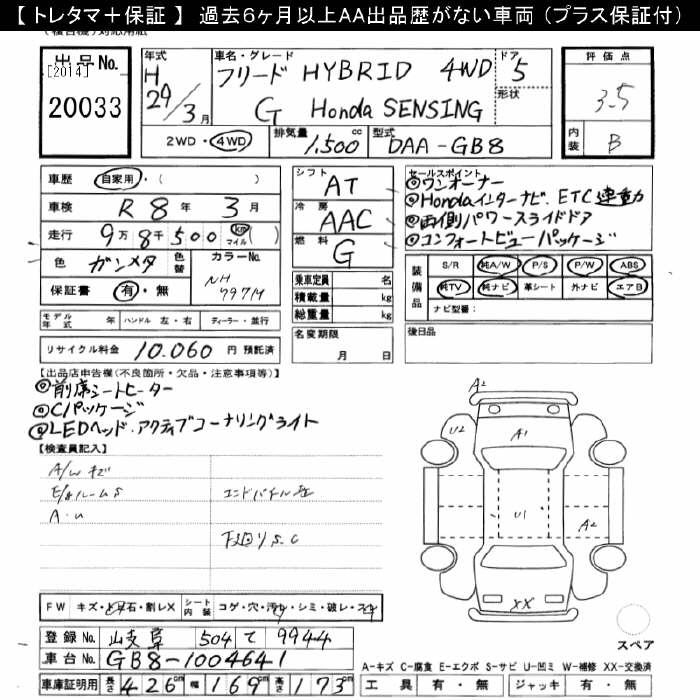 【 トレタマ＋保証 】 過去６ヶ月以上ＡＡ出品歴がない車両（プラス保証付）
出品No.
[2014]
20033
年式
H 29/3月
車名・グレード
フリード HYBRID 4WD
G Honda SENSING
ドア
5
形状
2WD・4WD
排気量
1,500 cc
型式
DAA-GB8
評価点
3.5
内装
B
車歴 自家用・( )
車検 R 8年 3月
走行 9万8千500 km マイル ( )
色 ガンメタ 色替 カラーNo.
NH
797M
保証書 有・無
モデル年式 年 ハンドル 左・右 ディーラー・並行
リサイクル料金 10,060 円 預託済
シフト
AT
冷房
AAC
燃料
G
乗車定員 名
積載量 kg
総重量 kg
名変期限
月 日
セールスポイント
◎ワンオーナー
◎Hondaインターナビ. ETC連動
◎両側パワースライドドア
◎コンフォートビューパッケージ
装備品
S/R 純A/W P/S P/W ABS
純TV 純ナビ 革シート 外ナビ エアB
ナビ型番:
後日品
【出品店申告欄(不良箇所・欠品・注意事項等)】
◎前席シートヒーター
◎Cパッケージ
◎LEDヘッド.アクティブコーナリングライト
【検査員記入】
A/Wキズ
A・U
下廻りS.C
A2
U2
A1
U1
A2
XX
スペア
FW キズ・飛石・割レX シート内装 コゲ・穴・汚レ・シミ・破レ・スレ
登録No. 岐阜 504 て 9944
車台No. GB8-1004641
車庫証明用 長さ 426cm 幅 169cm 高さ 173cm
A-キズ C-腐食 E-エクボ S-サビ U-凹ミ W-補修 XX-交換済
工具 有・無 ジャッキ 有・無